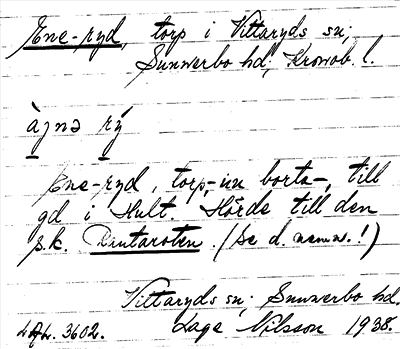 Ene-ryd, torp i Vittaryds sn;
Sunnerbo hd; Kronob. l.
àɲnə rý
Ene-ryd, torp, - nu borta -, till
gd i Hult. Hörde till den
s.k. Knutaroten. (Se d. namn!)
Vittaryds sn; Sunnerbo hd.
3602. Lage Nilsson 1938.